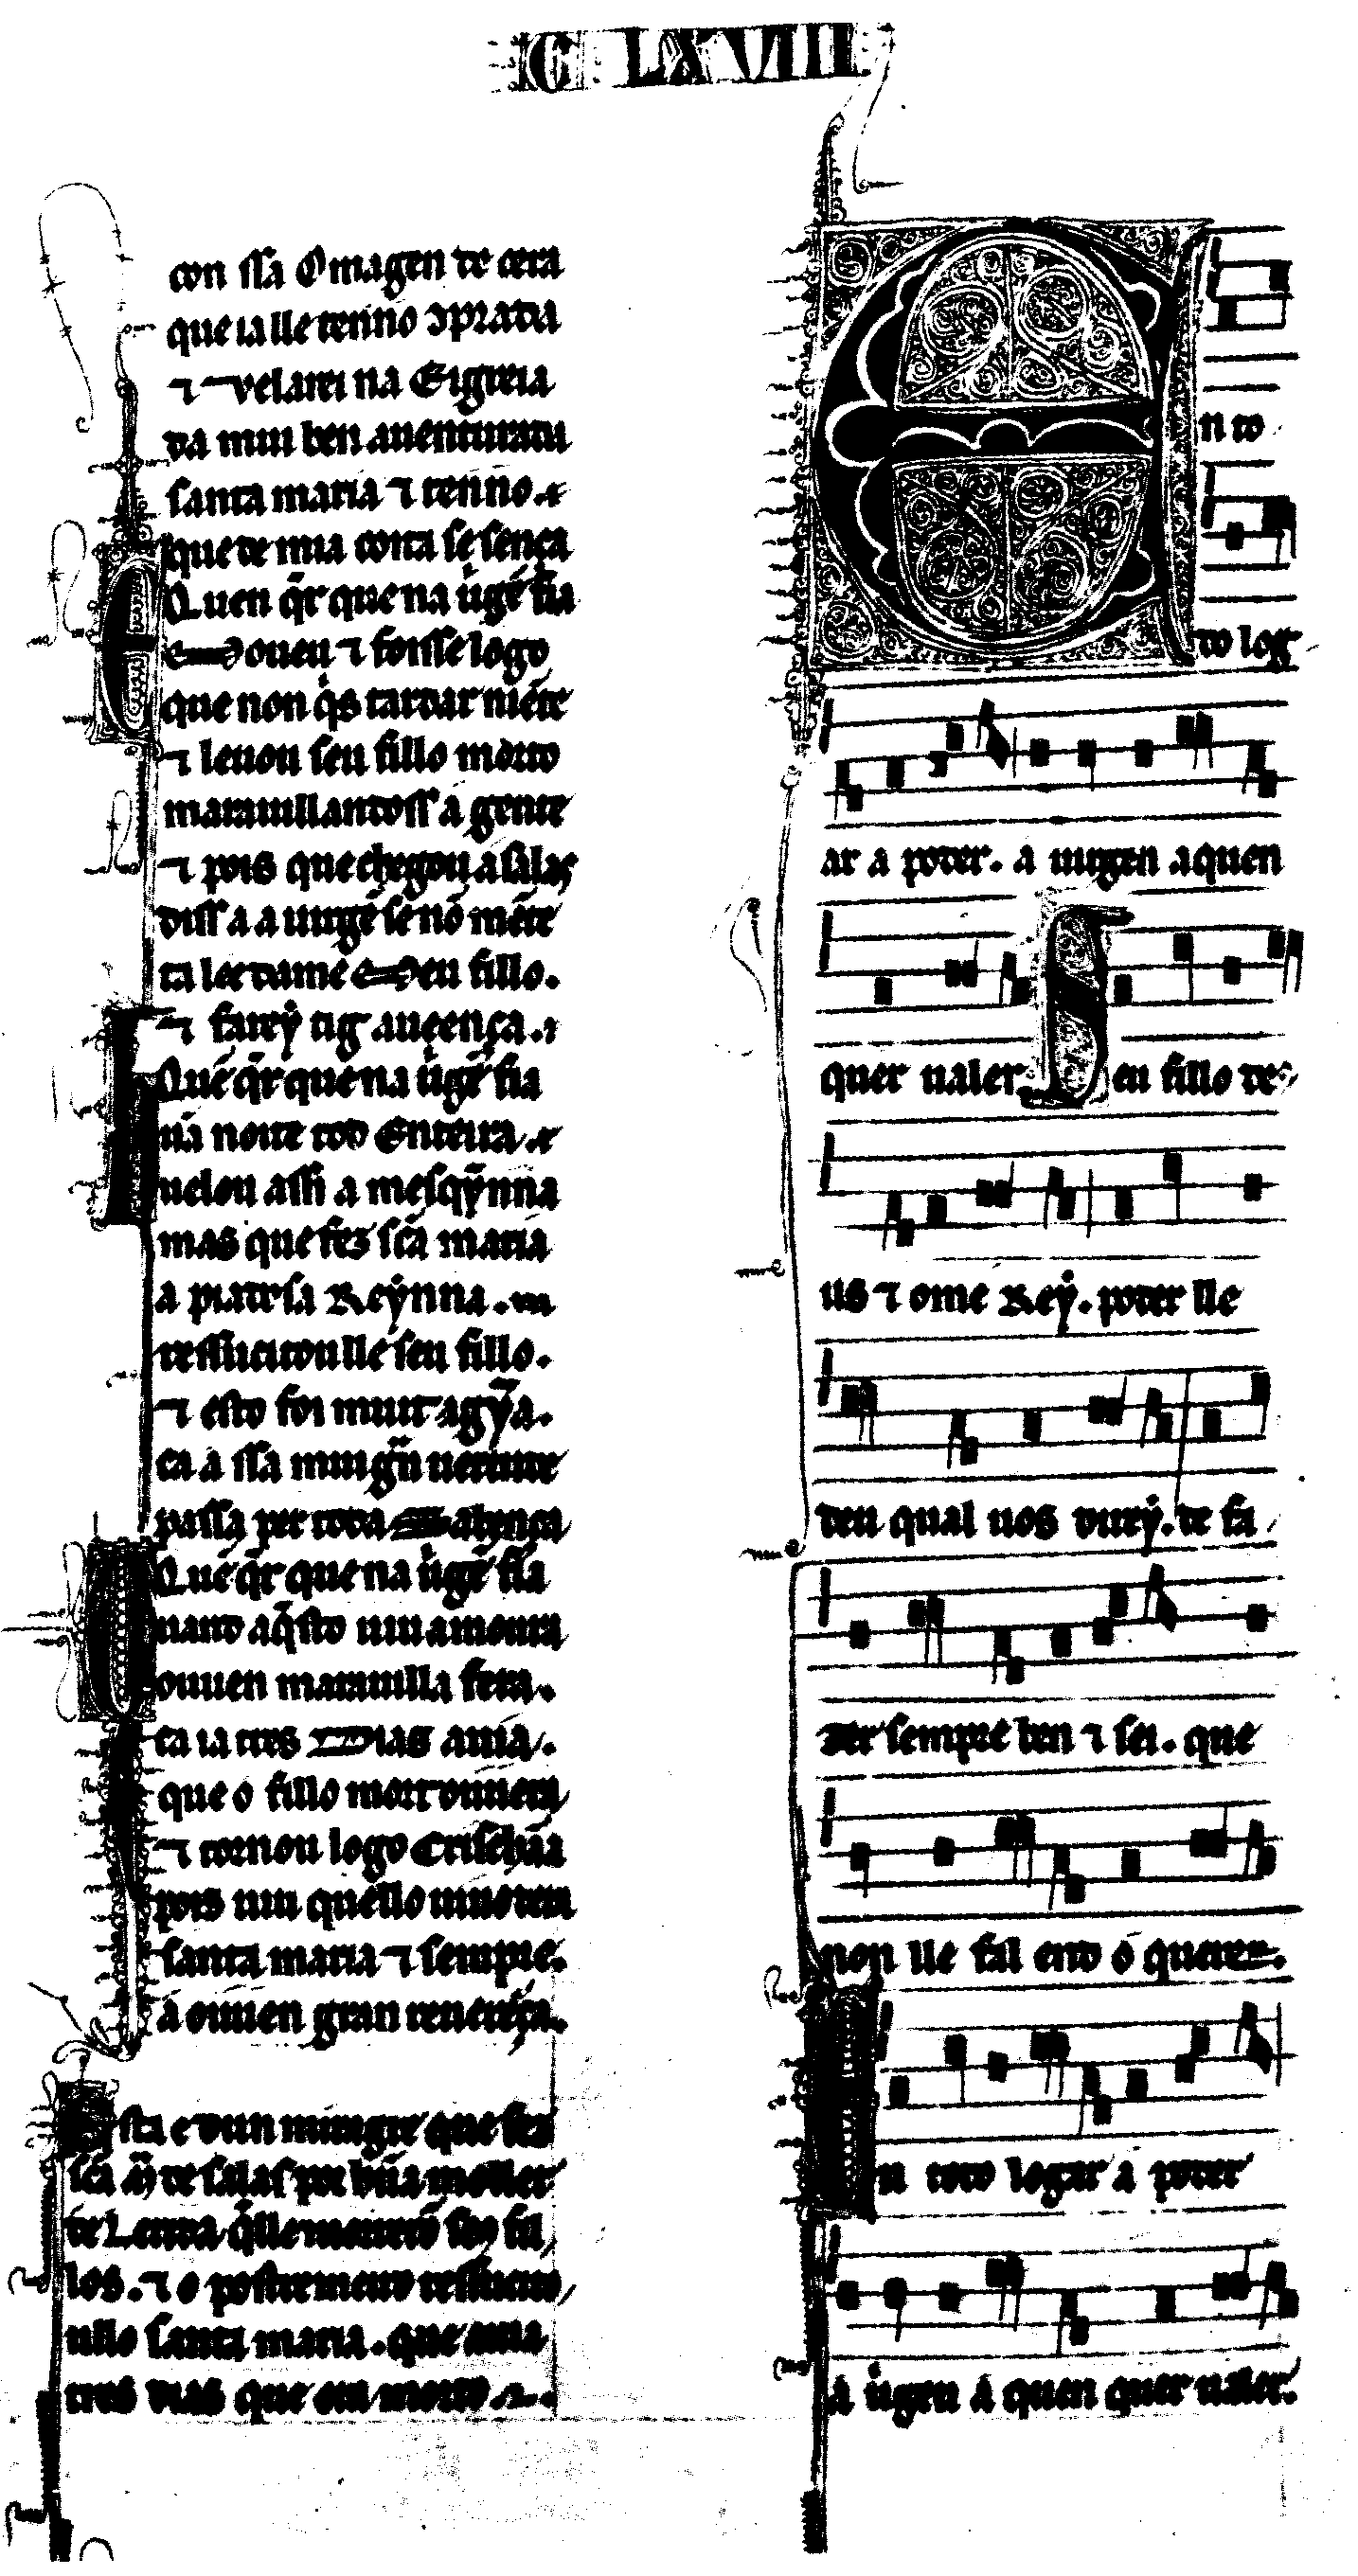 C LXVIII
con ssa Omagen de cera
que ia lle tenno ɔprada
⁊ velarei na Eigreia
da mui ben auenturada
santa maria ⁊ tenno.
que de mia coita se sença
Quen q̄r que na uırgē fia
E moueu ⁊ foisse logo
que non q̇s tardar niē̄te
⁊ leuou seu fillo morto
marauillandoss a gente
⁊ pois que chegou a salas
diss a a uirgē se nō mēte
ta lee dume meu fillo.
⁊ farey tig aueença.
Quē q̄r que na uırgē fia
ũa noite tod Enteira.
uelou assi a mesqỹnna
mas que fez sc̄a maria
a piadosa Reỹnna.
ressucitoulle seu fillo.
⁊ esto foi muit agỹa.
ca a ssa mui gr̄n uertude
passa per toda atença
Quē q̄r que na uırgē fia
uand aq̄sto uiu a moller
ouuen marauilla fera.
ca ia tres Dias auia.
que o fillo mort ouuera
⁊ tornou logo Crischãa
pois uiu que llo uiuo deu
santa maria ⁊ sempre.
a ouuen gran reuerēça.
Esta e dun miragre que fez
sc̄a m̄ de salas por hũa moller
de Lerida q̄ lle morrerō seo fil
los. ⁊ o postremeiro ressucito
ullo santa maria. que auia
tres dias que era morto.
En to
do log
ar a poder. a uirgen a quen
quer ualer. Seu fillo de
us ⁊ ome Rey. poder lle
deu qual uos direy. de fa
zer sempre ben ⁊ sei. que
non lle fal end o querer.
En todo logar a poder
a uirgen a quen quer ualer.